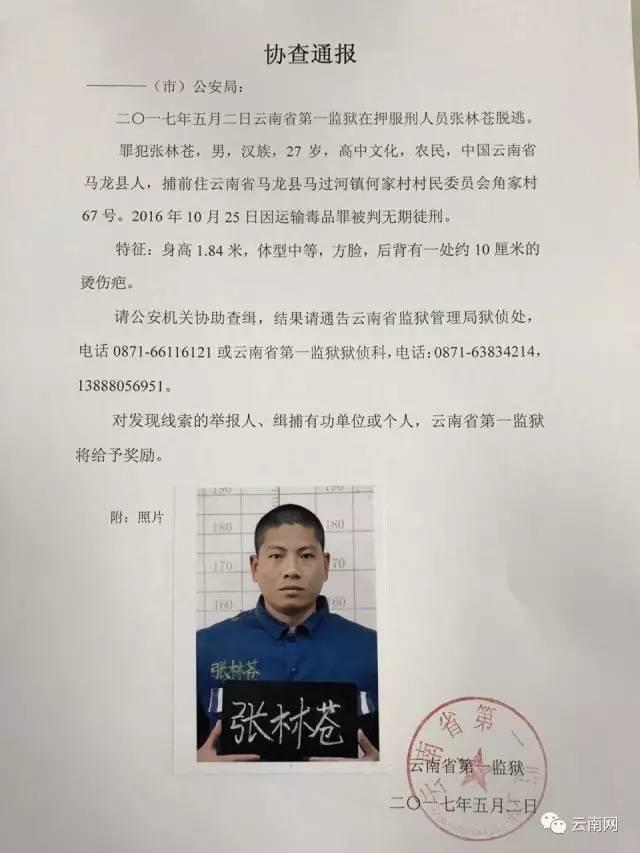 协查通报
————（市）公安局：
二〇一七年五月二日云南省第一监狱在押服刑人员张林苍脱逃。
罪犯张林苍，男，汉族，27 岁，高中文化，农民，中国云南省
马龙县人，捕前住云南省马龙县马过河镇何家村村民委员会角家村
67 号。2016 年 10 月 25 日因运输毒品罪被判无期徒刑。
特征：身高 1.84 米，体型中等，方脸，后背有一处约 10 厘米的
烫伤疤。
请公安机关协助查缉，结果请通告云南省监狱管理局狱侦处，
电话 0871-66116121 或云南省第一监狱狱侦科，电话：0871-63834214，
13888056951。
对发现线索的举报人、缉捕有功单位或个人，云南省第一监狱
将给予奖励。
附：照片
190 190
180 180
170 170
160 160
张林苍
张林苍
云南省第一监狱
云南省第一监狱
二〇一七年五月二日
云南网